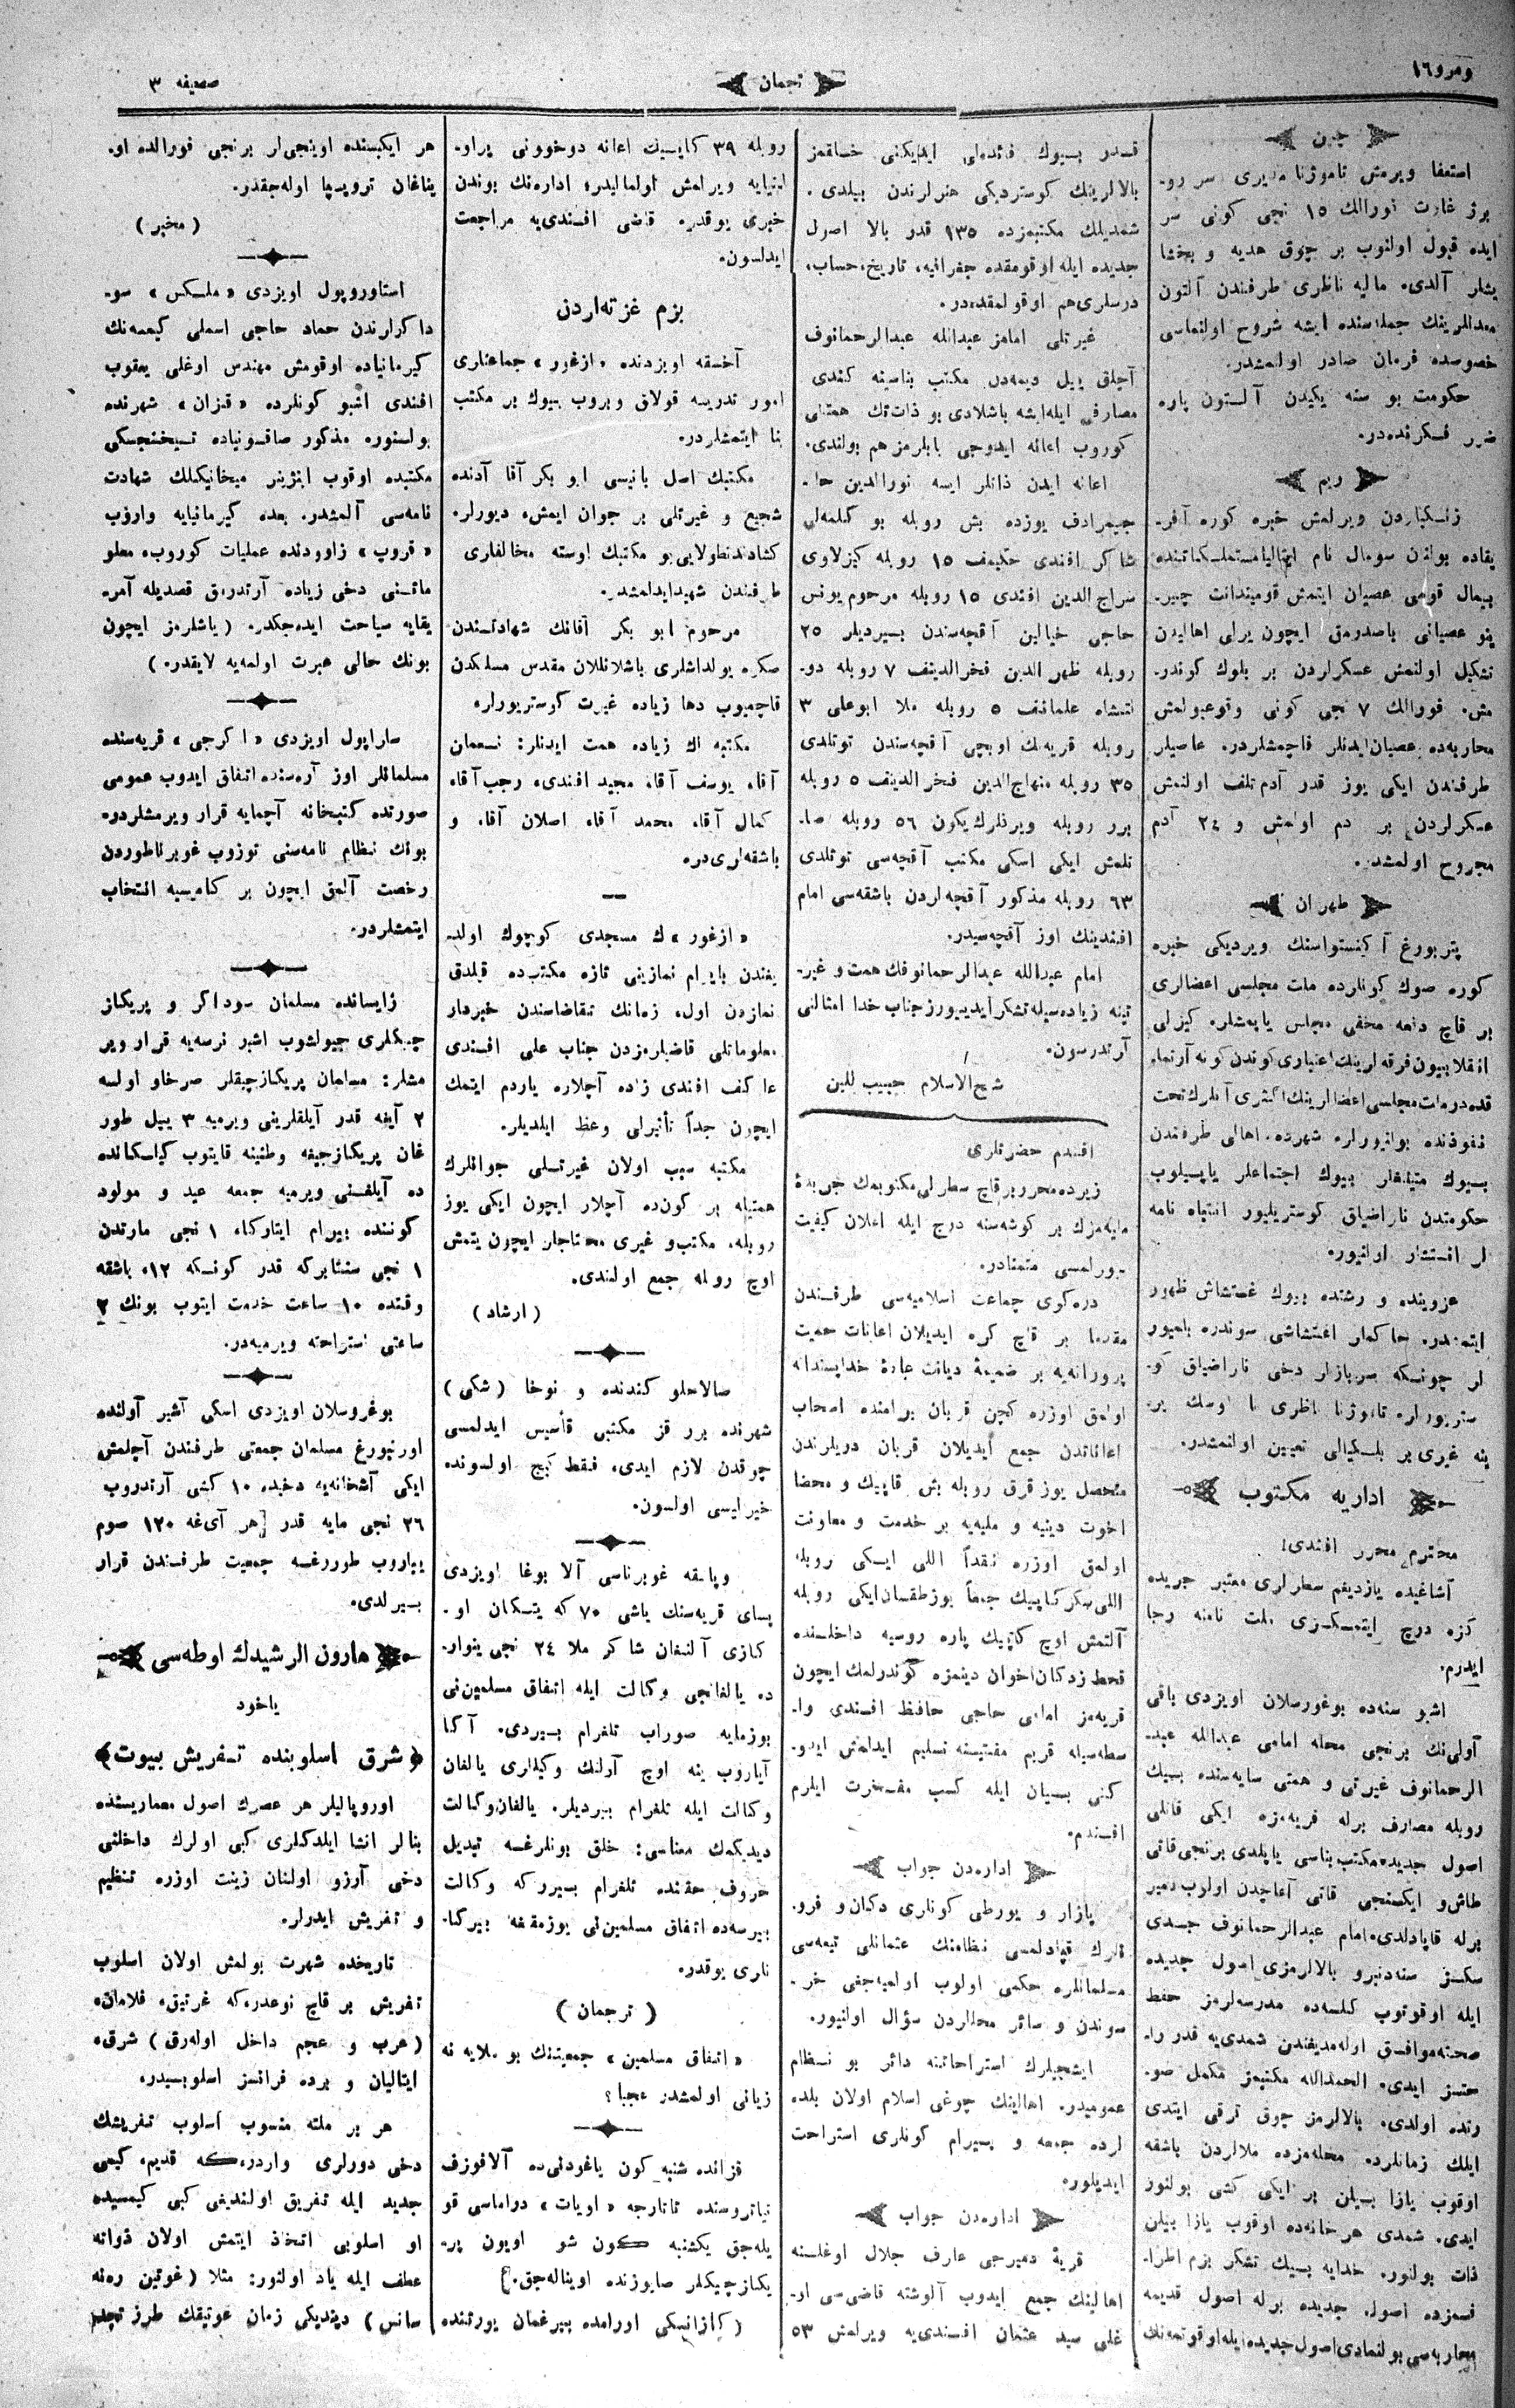 ومرو ١٦
ترجمان
صحیفه ٣
چین
استعفا ویرمش تاموژنا مدیری سر رو-
برژ غارت نورالك ١٥ نجی كونی سر
ایده قبول اولنوب بر چوق هدیه و بخشا
یشلر آلدی. مالیه ناظری طرفندن آلتون
معدنلرینك جمله‌سنده ایشه شروح اولنماسی
خصوصده فرمان صادر اولمشدر.
حكومت بو سنه یكیدن آلتون پاره
ضرر فكرنده‌در.
ریم
زنكباردن ویرلمش خبره كوره آفر-
یقاده بولنن سومال نام ایتالیا مستملكاتنده
بیمال قومی عصیان ایتمش قومیندانت چیر-
ینو عصیانی باصدرمق ایچون یرلی اهالیدن
تشكیل اولنمش عسكرلردن بر بلوك كوندر-
مش. فورالك ٧ نجی كونی وقوعبولمش
محاربه‌ده عصیان ایدنلر قاچمشلردر. عاصیلر
طرفندن ایكی یوز قدر آدم تلف اولنمش
عسكرلردن بر دم اولمش و ٢٤ آدم
مجروح اولمشدر.
طهران
پتربورغ آكنستواسنك ویردیكی خبره
كوره صوك كونلرده ملت مجلسی اعضالری
بر قاچ دفعه مخفی مجلس یاپمشلر. كیزلی
انقلابیون فرقه‌لرینك اعتباری كوندن كونه آرتماـ
قده‌در. ملت مجلسی اعضالرینك اكثری آنلرك تحت
نفوذنده بولنیورلر. شهرده اهالی طرفندن
بیوك میتینغلر بیوك اجتماعلر یاپیلوب
حكومتدن ناراضیلق كوستریلیور انتباه نامه
لر انتشار اولنیور.
قزوینده و رشتده بیوك غتشاش ظهور
ایتمشدر. حاكملر اغتشاشی سوندره بلمیور
لر چونكه سربازلر دخی ناراضیلق كو-
ستریورلر. تاموژنا ناظری نا اوسك یر-
ینه غیری بر بلكیالی تعیین اولنمشدر.
اداریه مكتوب
محترم محرر افندی!
آشاغیده یازدیغم سطرلری معتبر جریده
كزه درج ایتمكزی ملت نامنه رجا
ایدرم.
اشبو سنه‌ده بوغورسلان اویزدی باقی
آولی‌نك برنجی محله امامی عبدالله عبد-
الرحمانوف غیرتی و همتی سایه‌سنده بیك
روبله مصارف برله قریه‌مزه ایكی قاتلی
اصول جدیده مكتب بناسی یاپلدی برنجی قاتی
طاش و ایكنجی قاتی آغاچدن اولوب دمیر
برله قاپادلدی. امام عبدالرحمانوف جسدی
سكز سنه‌دنبرو بالالرمزی اصول جدیده
ایله اوقوتوب كلسه‌ده مدرسه‌لرمز حفظ
صحته موافق اوله‌مدیغندن شمدی‌یه قدر را-
حتسز ایدی. الحمدالله مكتبمز مكمل صو-
رتده اولدی. بالالرمز چوق ترقی ایتدی
ایلك زمانلرده محله‌مزده ملالردن باشقه
اوقوب یازا بیلن بر ایكی كشی بولنور
ایدی. شمدی هر خانه‌ده اوقوب یازا بیلن
ذات بولنور. خدایه بیك تشكر بزم اطرا-
فمزده اصول جدیده برله اصول قدیمه
محاربه‌سی بولنمادی اصول جدیده ایله اوقوتمه‌نك
قدر بیوك فائده‌لی ایدیكنی خلقمز
بالالرینك كوستردیكی هنرلرندن بیلدی.
شمدیلك مكتبمزده ١٣٥ قدر بالا اصول
جدیده ایله اوقومقده جغرافیه، تاریخ، حساب،
درسلری هم اوقولمقده‌در.
غیرتلی امامز عبدالله عبدالرحمانوف
آجلق ییل دیمه‌دن مكتب بناسینه كندی
مصارفی ایله ایشه باشلادی بو ذات‌نك همتنی
كوروب اعانه ایدوجی بایلرمز هم بولندی.
اعانه ایدن ذاتلر ایسه نورالدین حا-
جیمرادف یوزده بش روبله بو كلمه‌لی
شاكر افندی حكیمف ١٥ روبله كیزلاوی
سراج الدین افندی ١٥ روبله مرحوم یونس
حاجی خیالین آقچه‌سندن بیردیلر ٢٥
روبله ظهر الدین فخرالدینف ٧ روبله دو-
لتشاه علمانف ٥ روبله ملا ابوعلی ٣
روبله قریه‌نك اوبچی آقچه‌سندن توتلدی
٣٥ روبله منهاج‌الدین فخرالدینف ٥ روبله
برر روبله ویرنلرك یكون ٥٦ روبله صا-
تلمش ایكی اسكی مكتب آقچه‌سی توتلدی
٦٣ روبله مذكور آقچه‌لردن باشقه‌سی امام
افندینك اوز آقچه‌سیدر.
امام عبدالله عبدالرحمانوفك همت و غیر-
تینه زیاده‌سیله تشكر ایدییورز جناب خدا امثالنی
آرتدرسون.
شیخ الاسلام حبیب للین
افندم حضرتلری
زیرده محرر بر قاچ سطرلی مكتوبمك جریدهٔ
ملیه‌مزك بر كوشه‌سنه درج ایله اعلان كیفیت
بیورلمسی متمنادر.
دره‌كوی جماعت اسلامیه‌سی طرفندن
مقدما بر قاچ كره ایدیلان اعانات حمیت
پرورانه‌یه بر ضمیمهٔ دیانت عبادهٔ خداپسندانه
اولمق اوزره كچن قربان بیرامنده اصحاب
اعاناتدن جمع ایدیلان قربان دریلرندن
متحصل یوز قرق روبله بش قاپیك و محضا
اخوت دینیه و ملیه‌یه بر خدمت و معاونت
اولمق اوزره نقداً اللی ایكی روبله
اللی سكز كاپیك جمعاً یوز طقسان ایكی روبله
آلتمش اوچ كاپیك پاره روسیه داخلنده
قحط زدكان اخوان دینمزه كوندرلمك ایچون
قریه‌مز امامی حاجی حافظ افندی وا-
سطه‌سیله قریم مفتیسنه تسلیم ایدلمش ایدو-
كنی بیان ایله كسب مفخرت ایلرم
افندم.
اداره‌دن جواب
پازار و یورطی كونلری دكان و فرو-
نلرك قپادلمسی نظامنك عثمانلی تبعه‌سی
مسلمانلره حكمی اولوب اولمیه‌جغی خر-
سوندن و سائر محللردن سؤال اولنیور.
ایشجیلرك استراحاتنه دائر بو نظام
عمومیدر. اهالینك چوغی اسلام اولان بلده
لرده جمعه و بیرام كونلری استراحت
ایدیلور.
اداره‌دن جواب
قریهٔ دمیرجی عارف جلال اوغلنه
اهالینك جمع ایدوب آلوشته قاضی‌سی او-
غلی سید عثمان افندی‌یه ویرلمش ٥٣
روبله ٣٩ كاپیك اعانه دوخوونی پراو-
لینیایه ویرلمش اولمالیدر؛ اداره‌نك بوندن
خبری یوقدر. قاضی افندی‌یه مراجعت
ایدلسون.
بزم غزته‌لردن
آخسقه اویزدنده «ازغور» جماعتلری
امور تدریسه قولاق ویروب بیوك بر مكتب
بنا ایتمشلردر.
مكتبك اصل بانیسی ابو بكر آقا آدنده
شجیع و غیرتلی بر جوان ایمش، دیورلر.
كشادندنطولایی بو مكتبك اوسته مخالفلری
طرفندن شهید ایدلمشدر.
مرحوم ابو بكر آقانك شهادتندن
صكره یولداشلری باشلانلان مقدس مسلكدن
قاچمیوب دها زیاده غیرت كوستریورلر.
مكتبه اك زیاده همت ایدنلر: نعمان
آقا، یوسف آقا، مجید افندی، رجب آقا،
كمال آقا، محمد آقا، اصلان آقا، و
باشقه‌لری‌در.
«ازغور»ك مسجدی كوچوك اولد-
یغندن بایرام نمازینی تازه مكتب‌ده قیلدق
نمازدن اول، زمانك تقاضاسندن خبردار
معلوماتلی قاضیلرمزدن جناب علی افندی
عاكف افندی زاده آچلاره یاردم ایتمك
ایچون جداً تأثیرلی وعظ ایلدیلر.
مكتبه سبب اولان غیرتلی جوانلرك
همتیله بر كون‌ده آچلار ایچون ایكی یوز
روبله، مكتب و غیری محتاجلر ایچون یتمش
اوچ روبله جمع اولندی.
(ارشاد)
صالاحلو كندنده و نوخا (شكی)
شهرنده برر قز مكتبی تأسیس ایدلمسی
چوقدن لازم ایدی، فقط كیج اولسونده
خیرلیسی اولسون.
ویاتقه غوبرناسی آلا بوغا اویزدی
پسای قریه‌سنك یاشی ٧٠ كه یتكان او-
كازی آلنغان شاكر ملا ٢٤ نجی ینوار-
ده یالغانجی وكالت ایله اتفاق مسلمین‌نی
بوزمایه صوراب تلغرام بیردی. آكا
آیاروب ینه اوچ آولنك وكیللری یالغان
وكالت ایله تلغرام بیردیلر. یالغان وكالت
دیدیكمك معناسی: خلق بونلرغه تبدیل
حروف حقنده تلغرام بیررگه وكالت
بیرسه‌ده اتفاق مسلمین‌نی بوزمقغه بیركا-
نلری یوقدر.
(ترجمان)
«اتفاق مسلمین» جمعیتنك بو ملایه نه
زیانی اولمشدر عجبا؟
قزانده شنبه كون یاغودنی‌ده آلافوزف
تیاتروسنده تاتارجه «اویات» دراماسی قو
یله‌جق یكشنبه كون شو اویون پر-
یكازچیكلر صایوزنده اوینالەجق.
(كازانسكی اورامده بیرغمان یورتنده
هر ایكیسنده اوینجی‌لر برنجی فورالده او-
یناغان تروپپا اوله‌جقدر.
(مخبر)
استاوروپول اویزدی «ملكس» سو-
داكرلرندن حماد حاجی اسملی كیمسه‌نك
كیرمانیاده اوقومش مهندس اوغلی یعقوب
افندی اشبو كونلرده «قزان» شهرنده
بولنور. مذكور صاقسونیاده تیخنچسكی
مكتبده اوقوب اینژینر میخانیكلك شهادت
نامه‌سی آلمشدر. بعده كیرمانیایه وارۇب
«قروپ» زاوودنده عملیات كوروب، معلو
ماتنی دخی زیاده آرتدرمق قصدیله آمر-
یقایه سیاحت ایده‌جكدر. (یاشلرمز ایچون
بونك حالی عبرت اولمه‌یه لایقدر.)
ساراپول اویزدی «اكرجی» قریه‌سنده
مسلمانلر اوز آره‌سنده اتفاق ایدوب عمومی
صورتده كتبخانه آچمایه قرار ویرمشلردر.
بونك نظام نامه‌سنی توزوب غوبرناطوردن
رخصت آلمق ایچون بر كامیسیه انتخاب
ایتمشلردر.
زایسانده مسلمان سوداكر و پریكاز
چیكلری جیولشوب اشبر نرسه‌یه قرار ویر
مشلر: مسلمان پریكازچیقلر صرخاو اولسه
٢ آیغه قدر آیلقلرینی ویرمیه ٣ ییل طور
غان پریكازجیغه وطنینه قایتوب كیلكانده
ده آیلغنی ویرمیه جمعه عید و مولود
كوننده بیرام ایتاركا، ١ نجی مارتدن
١ نجی سنتابركه قدر كونكه ١٢، باشقه
وقتده ١٠ ساعت خدمت ایتوب بونك ٢
ساعتی استراحته ویرمیه‌در.
بوغروسلان اویزدی اسكی آشیر آولنده
اورنبورغ مسلمان جمعتی طرفندن آچلمش
ایكی آشخانه‌یه دخیده ١٠ كشی آرتدروب
٢٦ نجی مایه قدر هر آی‌غه ١٢٠ صوم
بیاروب طوررغه جمعیت طرفندن قرار
بیرلدی.
هارون الرشیدك اوطه‌سی
یاخود
﴿شرق اسلوبنده تفریش بیوت﴾
اوروپالیلر هر عصرك اصول معماریسنده
بنالر انشا ایلدكلری كبی اولرك داخلنی
دخی آرزو اولنان زینت اوزره تنظیم
و تفریش ایدرلر.
تاریخده شهرت بولمش اولان اسلوب
تفریش بر قاچ نوعدر، كه غوتیق، فلامان،
(عرب و عجم داخل اوله‌رق) شرق،
ایتالیان و برده فرانسز اسلوبیدر.
هر بر ملته منسوب اسلوب تفریشك
دخی دورلری واردر، كه قدیم، كیمی
جدید ایله تفریق اولندیغی كبی كیمسیده
او اسلوبی اتخاذ ایتمش اولان ذواته
عطف ایله یاد اولنور: مثلا (غوتین ره‌نه
سانس) دیندیكی زمان غوتیقك طرز تجدد